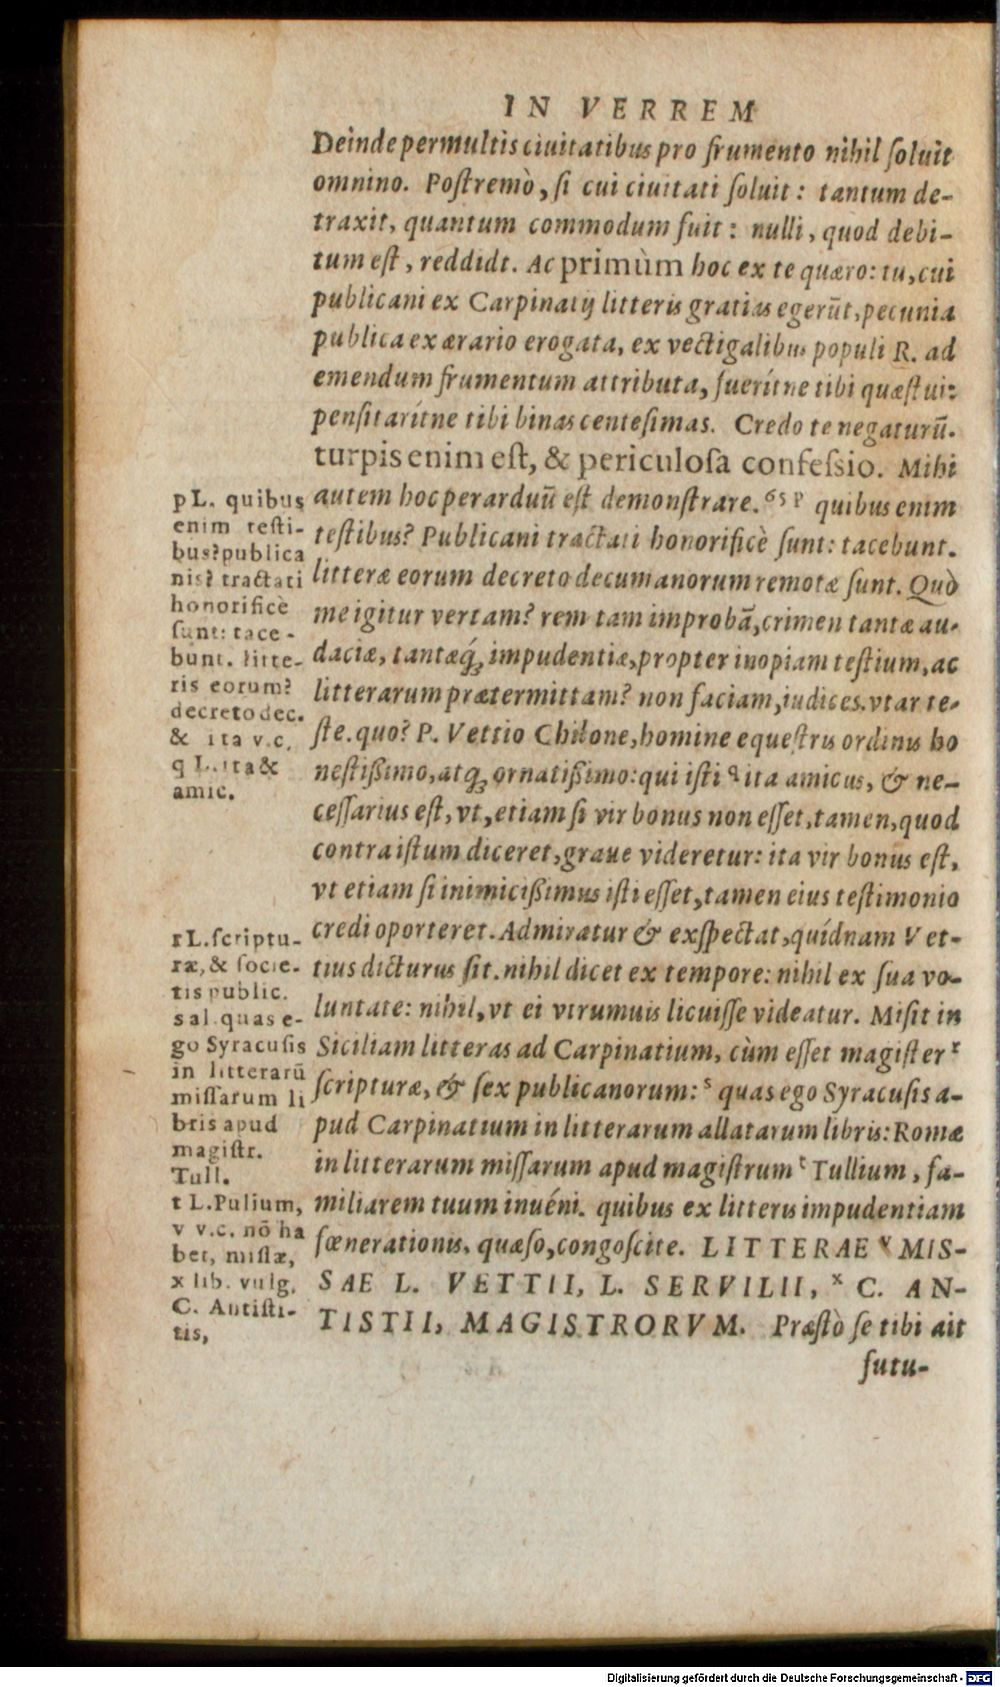 IN VERREM
Deinde permultis ciuitatibus pro frumento nihil soluit
omnino. Postremò, si cui ciuitati soluit: tantum de-
traxit, quantum commodum fuit: nulli, quod debi-
tum est, reddidt. Ac primùm hoc ex te quæro: tu, cui
publicani ex Carpinatij litteris gratias egerūt, pecunia
publica ex ærario erogata, ex vectigalibus populi R. ad
emendum frumentum attributa, fueritne tibi quæstui:
pensitarítne tibi binas centesimas. Credo te negaturū.
turpis enim est, & periculosa confessio. Mihi
autem hoc perarduū est demonstrare. 65 p quibus enim
testibus? Publicani tractati honorificè sunt: tacebunt.
litteræ eorum decreto decumanorum remotæ sunt. Quò
me igitur vertam? rem tam improbā, crimen tantæ au-
daciæ, tantæq; impudentiæ, propter inopiam testium, ac
litterarum prætermittam? non faciam, iudices. vtar te-
ste. quo? P. Vettio Chilone, homine equestris ordinis ho
nestißimo, atq; ornatißimo: qui isti q ita amicus, & ne-
cessarius est, vt, etiam si vir bonus non esset, tamen, quod
contra istum diceret, graue videretur: ita vir bonus est,
vt etiam si inimicißimus isti esset, tamen eius testimonio
credi oporteret. Admiratur & exspectat, quídnam Vet-
tius dicturus sit. nihil dicet ex tempore: nihil ex sua vo-
luntate: nihil, vt ei vtrumuis licuisse videatur. Misit in
Siciliam litteras ad Carpinatium, cùm esset magister r
scripturæ, & sex publicanorum: s quas ego Syracusis a-
pud Carpinatium in litterarum allatarum libris: Romæ
in litterarum missarum apud magistrum t Tullium, fa-
miliarem tuum inuéni. quibus ex litteris impudentiam
fœnerationis, quæso, congoscite. LITTERAE v MIS-
SAE L. VETTII, L. SERVILII, x C. AN-
TISTII, MAGISTRORVM. Præstò se tibi ait
futu-
p L. quibus
enim testi-
bus? publica
nis? tractati
honorificè
sunt: tace-
bunt. litte-
ris eorum?
decreto dec.
& ita v.c.
q L. ita &
amic.
r L. scriptu-
ræ, & socie-
tis public.
s al. quas e-
go Syracusis
in litterarū
missarum li
bris apud
magistr.
Tull.
t L. Pulium,
v v.c. nō ha
bet, missæ,
x lib. vulg.
C. Antisti-
tis,
Digitalisierung gefördert durch die Deutsche Forschungsgemeinschaft - DFG